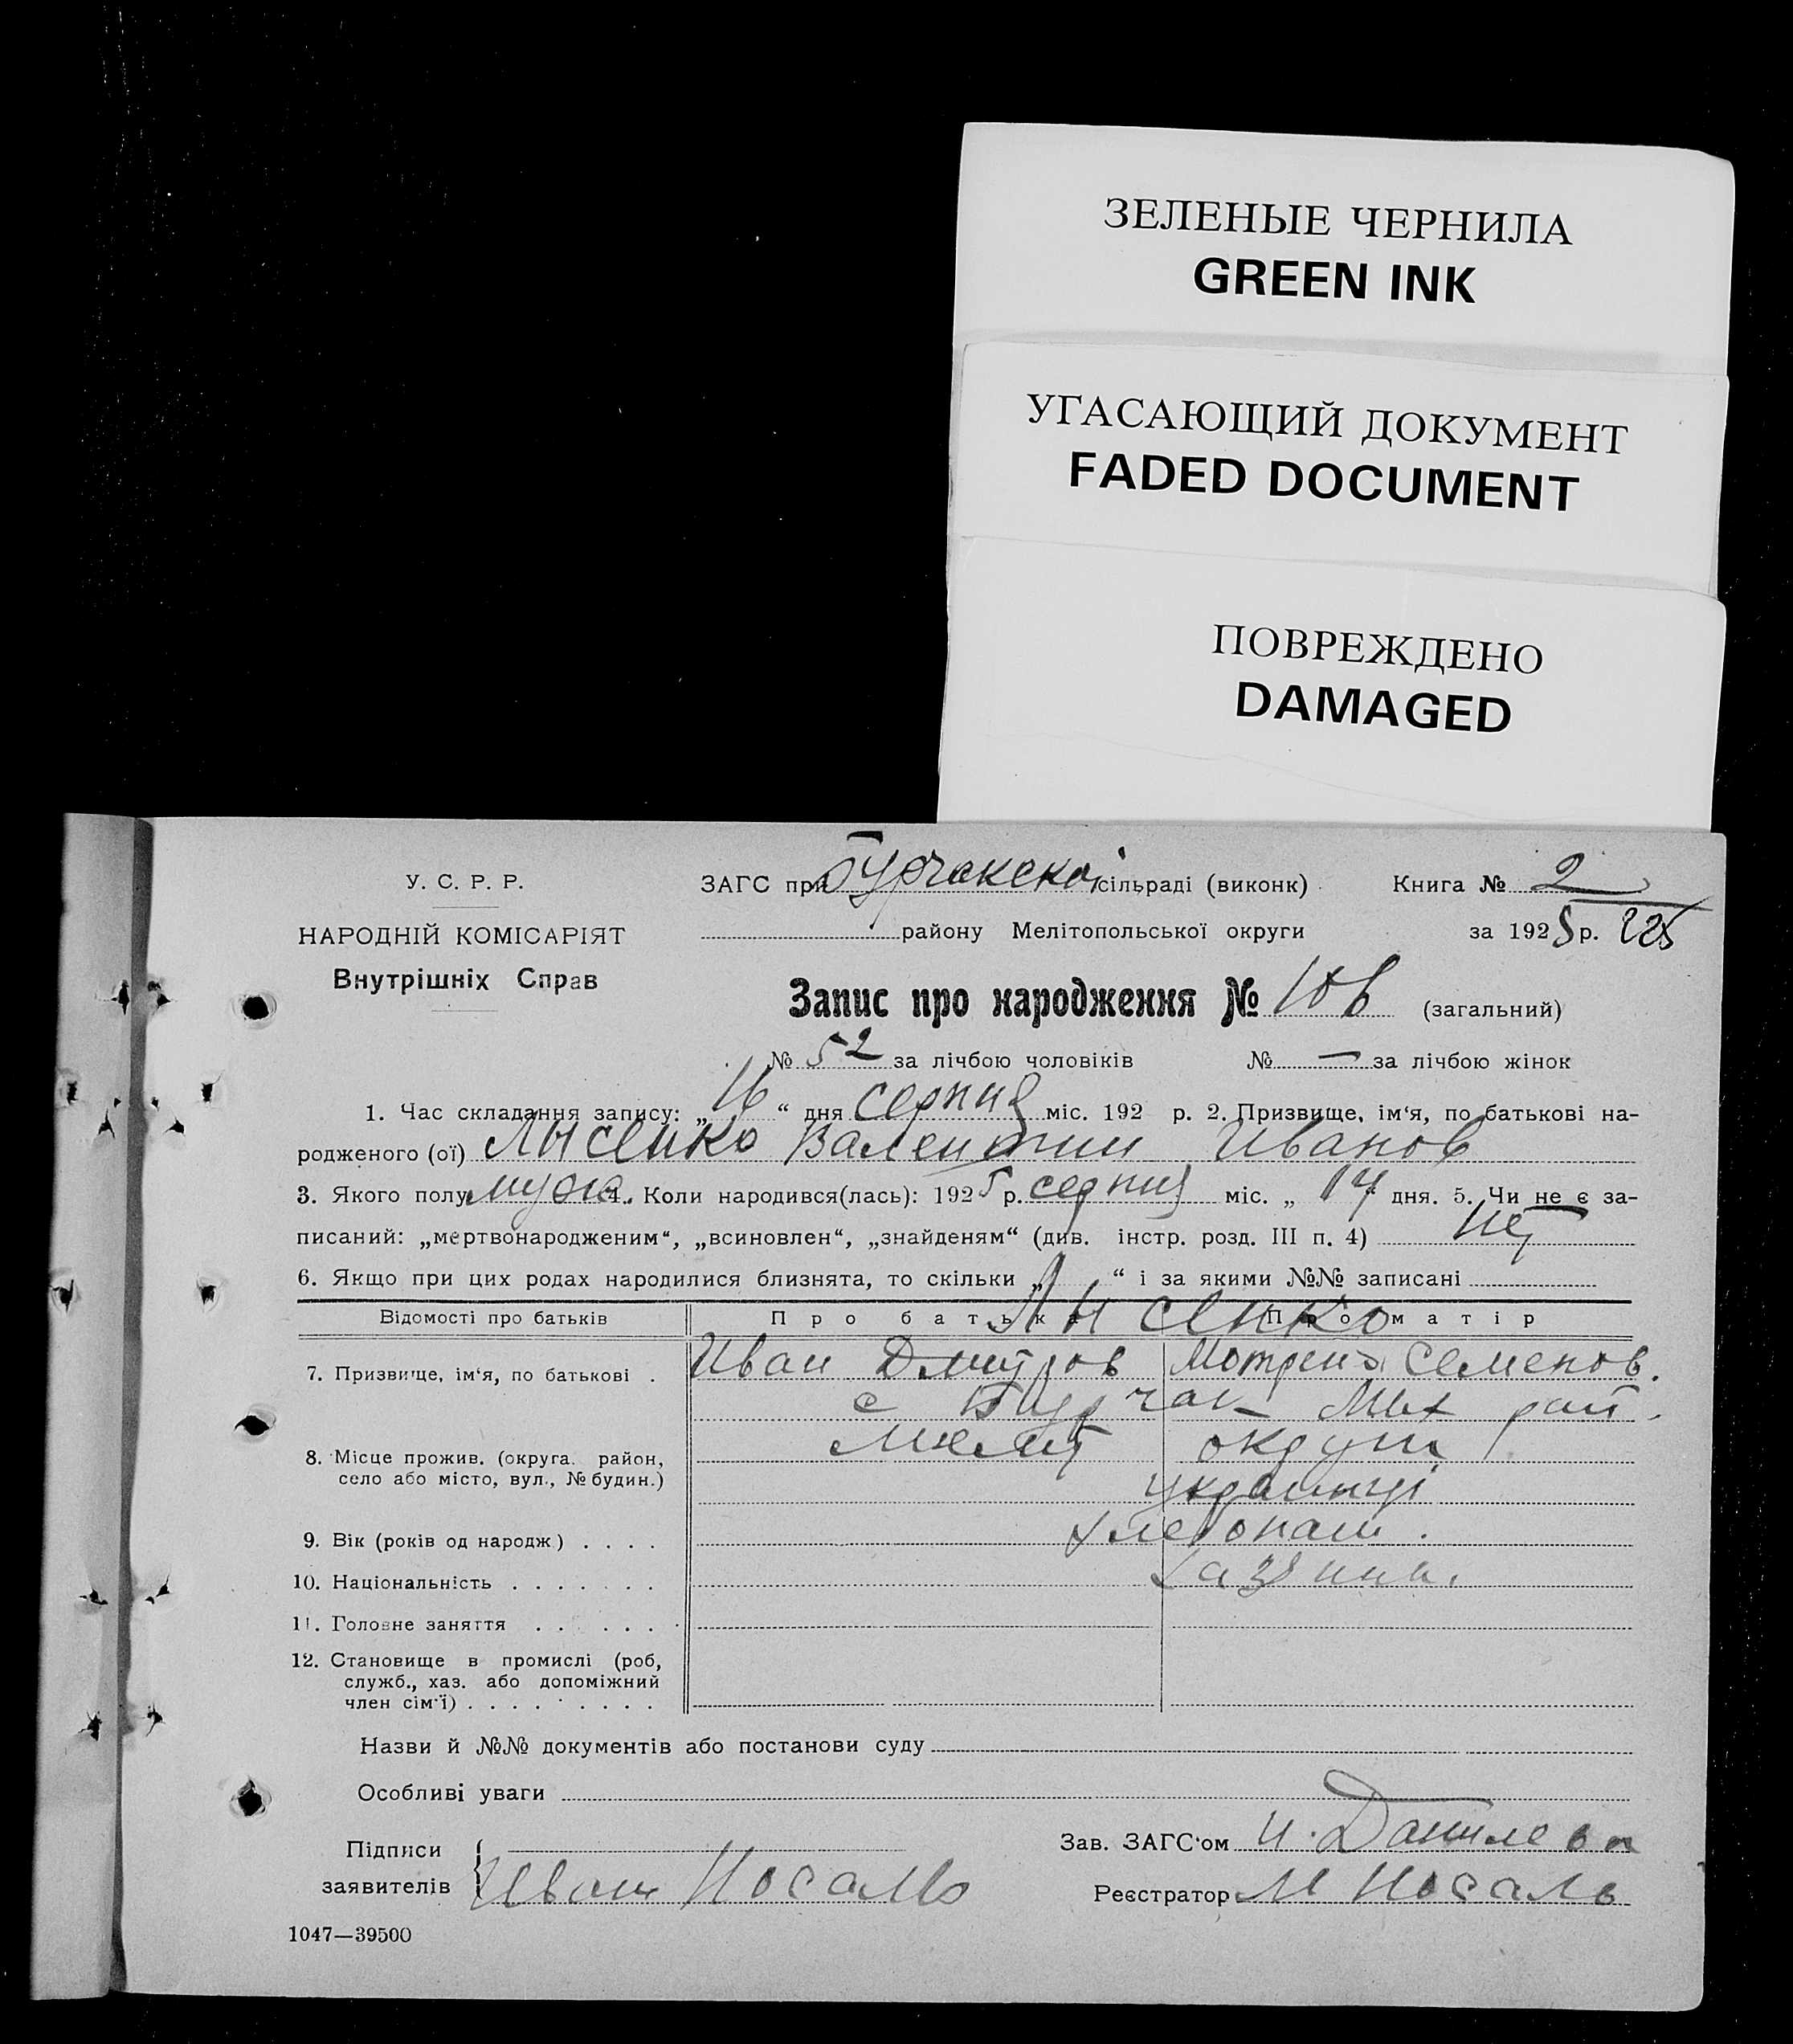 ЗЕЛЕНЫЕ ЧЕРНИЛА
GREEN INK
УГАСАЮЩИЙ ДОКУМЕНТ
FADED DOCUMENT
ПОВРЕЖДЕНО
DAMAGED
У. С. Р. Р.
НАРОДНІЙ КОМІСАРІЯТ
Внутрішніх Справ
ЗАГС при Бурчакској сільраді (виконк) Книга № 2
району Мелітопольської округи за 1925 р. 225
Запис про народження № 106 (загальний)
№ 52 за лічбою чоловіків № — за лічбою жінок
1. Час складання запису: „16“ дня серпня міс. 192 р. 2. Призвище, ім‘я, по батькові на-
родженого (ої) Лысенко Валентин Иванов
3. Якого полу муж. 4. Коли народився(лась): 1925 р. серпня міс. „ 14 дня. 5. Чи не є за-
писаний: „мертвонародженим“, „всиновлен“, „знайденям“ (див. інстр. розд. III п. 4) нет
6. Якщо при цих родах народилися близнята, то скільки „ “ і за якими №№ записані
Лысенко
Відомості про батьків Про батька Про матір
7. Призвище, ім‘я, по батькові . Иван Дмитров Мотрена Семенов.
с Бурчак Мих рай.
8. Місце прожив. (округа. район, село або місто, вул., № будин.) Мелит округи
украинці
9. Вік (років од народж) . . . . хлебопаш.
10. Національність . . . . . . .
11. Головне заняття . . . . . .
12. Становище в промислі (роб,
служб., хаз. або допоміжний
член сім‘ї) . . . . . . . . .
Назви й №№ документів або постанови суду
Особливі уваги
Підписи
заявителів Иван Носаль
Зав. ЗАГС‘ом И. Данилев

Реєстратор М Носаль
1047—39500